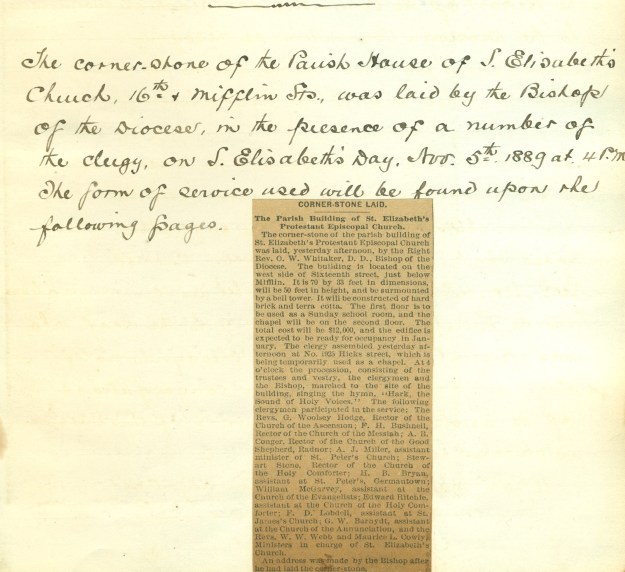 The corner-stone of the Parish House of S. Elisabeth's
Church, 16th & Mifflin Sts., was laid by the Bishop
of the Diocese, in the presence of a number of
the clergy, on S. Elisabeth's Day, Nov. 5th 1889 at 4 P.M.
The form of service used will be found upon the
following pages.
CORNER-STONE LAID.
The Parish Building of St. Elizabeth's
Protestant Episcopal Church.
The corner-stone of the parish building of
St. Elizabeth's Protestant Episcopal Church
was laid, yesterday afternoon, by the Right
Rev. O. W. Whitaker, D. D., Bishop of the
Diocese. The building is located on the
west side of Sixteenth street, just below
Mifflin. It is 70 by 35 feet in dimensions,
will be 50 feet in height, and be surmounted
by a bell tower. It will be constructed of hard
brick and terra cotta. The first floor is to
be used as a Sunday school room, and the
chapel will be on the second floor. The
total cost will be $12,000, and the edifice is
expected to be ready for occupancy in Jan-
uary. The clergy assembled yesterday af-
ternoon at No. 1925 Hicks street, which is
being temporarily used as a chapel. At 4
o'clock the procession, consisting of the
trustees and vestry, the clergymen and
the Bishop, marched to the site of the
building, singing the hymn, "Hark, the
Sound of Holy Voices." The following
clergymen participated in the service: The
Revs. G. Woolsey Hodge, Rector of the
Church of the Ascension; F. H. Bushnell,
Rector of the Church of the Messiah; A. B.
Conger, Rector of the Church of the Good
Shepherd, Radnor; A. J. Miller, assistant
minister of St. Peter's Church; Stew-
art Stone, Rector of the Church of
the Holy Comforter; H. B. Bryan,
assistant at St. Peter's, Germantown;
William McGarvey, assistant at the
Church of the Evangelists; Edward Ritchie,
assistant at the Church of the Holy Com-
forter; F. D. Lobdell, assistant at St.
James's Church; G. W. Barnydt, assistant
at the Church of the Annunciation, and the
Revs. W. W. Webb and Maurice L. Cowly,
Ministers in charge of St. Elizabeth's
Church.
An address was made by the Bishop after
he had laid the corner-stone.